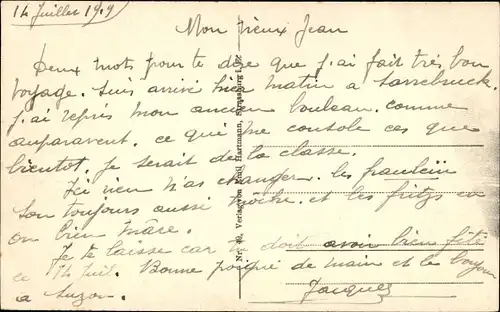 14 Juillet 1919
Mon vieux Jean
Deux mots pour te dire que j'ai fait très bon
voyage. Suis arrivé hier matin a Sarrebruck.
j'ai repris mon ancien bouleau. comme
auparavent. ce que me console ces que
bientot. Je serait de la classe.
Ici rien n'as changer. les
son toujours aussi moche. et les fritz en
on bien mare.
Je te laisse car tu doit avoir bien fêté
ce 14 Juil. Bonne poigné de main et le bonjour
a Suzon.
Jacques
Verlag von Emil Hartmann, Strassburg i. Els.